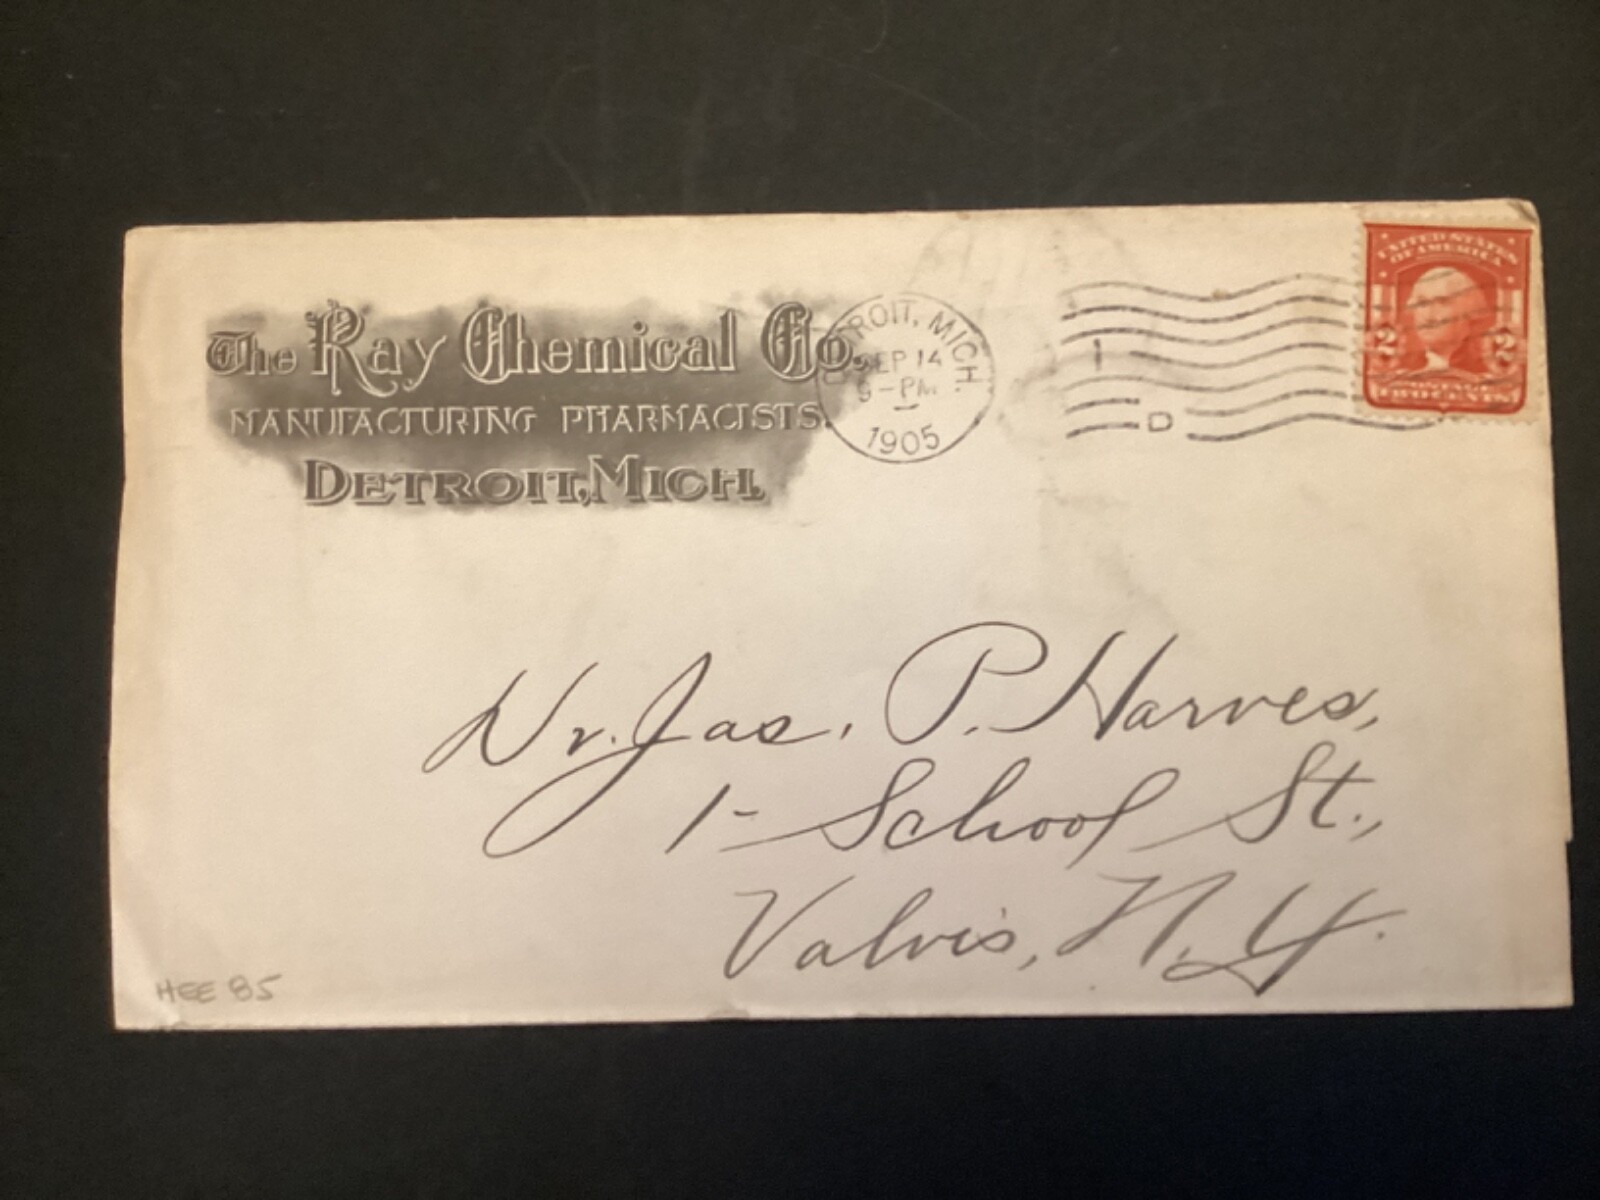 The Ray Chemical Co.
MANUFACTURING PHARMACISTS.
DETROIT, MICH.
DETROIT, MICH.
SEP 14
9-PM
1905
1
D
UNITED STATES
OF AMERICA
2 2
POSTAGE
TWO CENTS
Dr. Jas. P. Harves,
1- School St.,
Valvis, N.Y.
HEE 85